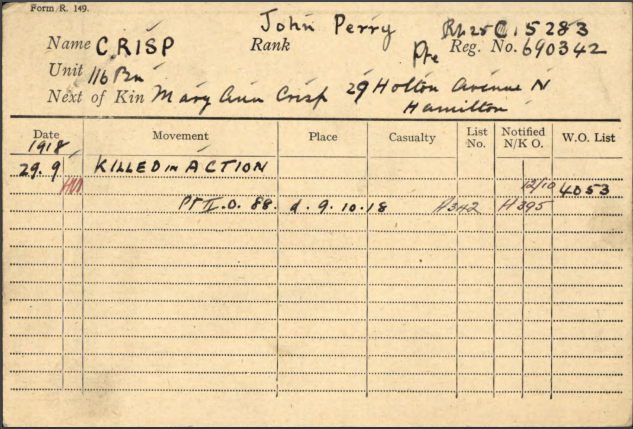 Form R. 149.
John Perry R.h.25 C 15283
Name CRISP Rank Pte Reg. No. 690342
Unit 116 Bn
Next of Kin Mary Ann Crisp 29 Holton Avenue N
Hamilton
Date Movement Place Casualty List No. Notified N/K O. W.O. List
1918
29. 9 KILLED in ACTION
12/10 4053
Pt II.O. 88. d. 9.10.18 H342 H395